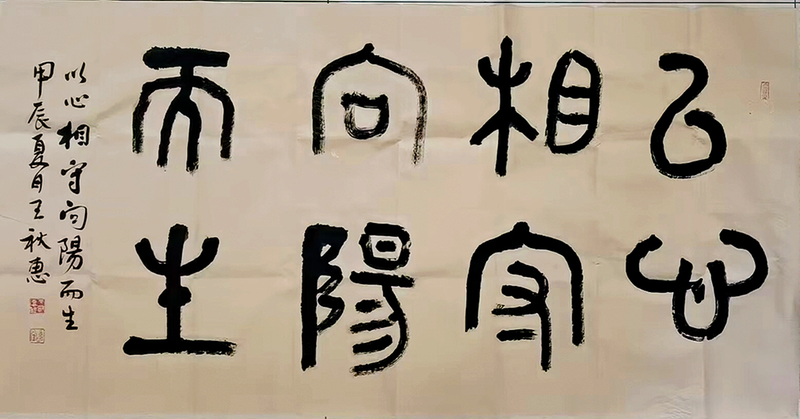 以心
相守
向陽
而生
以心相守向陽而生
甲辰夏月王秋惠